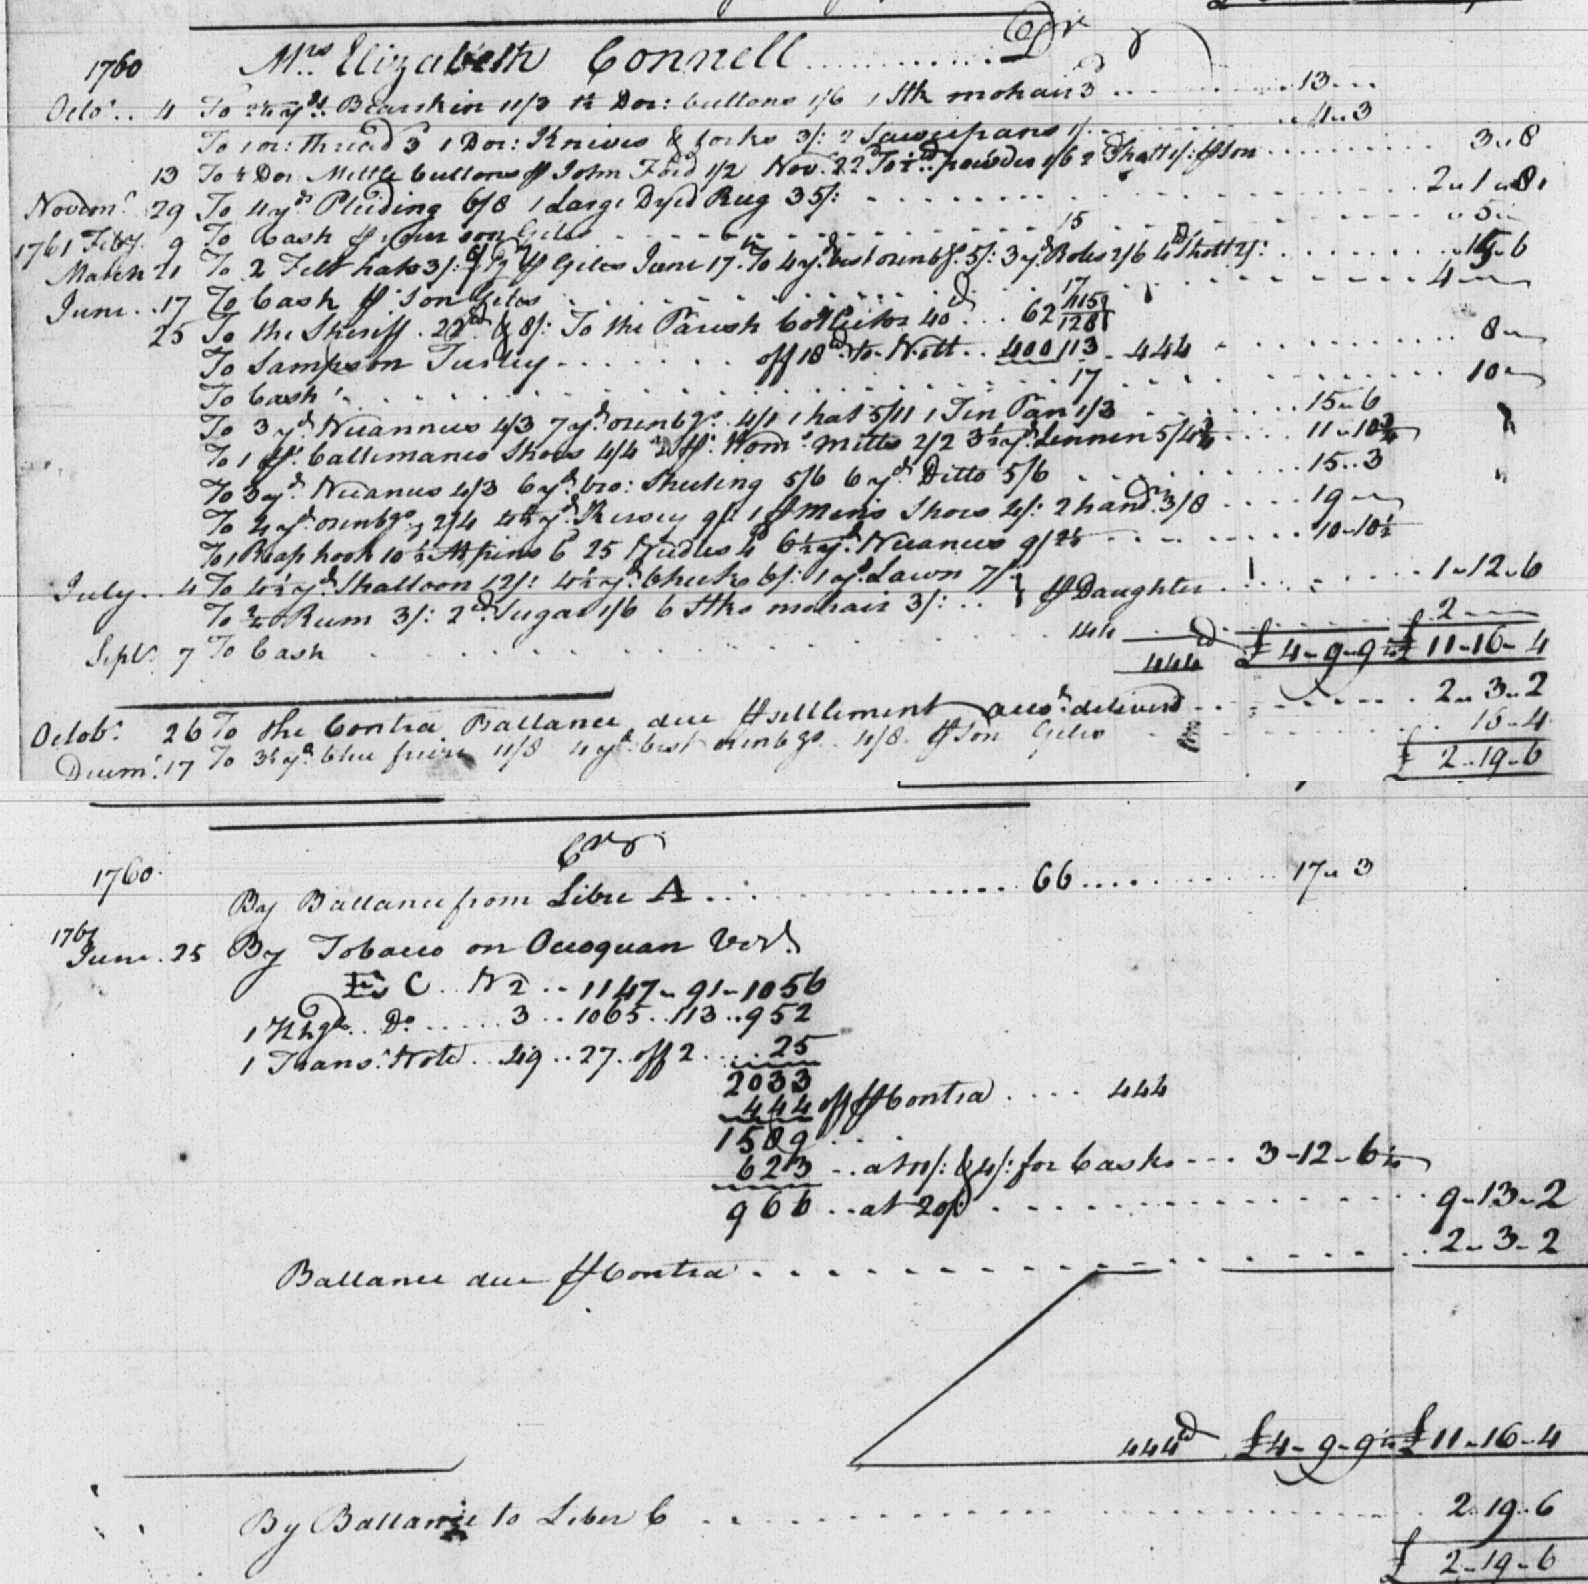 Mrs Elizabeth Connell ............ Dr
1760
Octor .. 4 To yds Bearskin 11/3 1½ Doz: buttons 1/6 1 Stk mohair 3 ... 13 ...
To 1 oz: thread 3 1 Doz: Knives & forks 3/: 2 Sawcepans 1/ ... 4 .. 3
13 To 1 Doz Mettle buttons p John Ford 1/2 Novr 22 To powder 1/6 2 Shatt p Son ... 3 .. 8
Novemr 29 To 4 yds Pleiding 6/8 1 Large Dyed Rug 35/: ... 2 .. 1 .. 8
1761 Feby 9 To Cash p your son Giles ... 15 ... 5 ..
March 21 To 2 Felt hats 3/: p Giles June 17 To 4 yds best ozenbgs 5/: 3 yds Roles 2/6 4d Shott 2/: ... 15 .. 6
June .. 17 To Cash p Son Giles ... 17 ... 4
25 To the Sheriff . 22d & 8/: To the Parish Collector 40d ... 62 415 128
To Sampson Turley ...... off 18d to Nett .. 400 113 .. 444 ... 8
To Cash ... 17 ... 10
To 3 yds Nuannus 4/3 7 yds ozenbgs 4/1 1 hat 5/11 1 Tin Pan 1/3 ... 15 .. 6
To 1 pr Callimanco Shoes 4/4 2 pr Woms Mitts 2/2 3½ yds Linnen 5/4¾ ... 11 .. 10¾
To 3 yds Nuanus 4/3 6 yds bro: Sheeting 5/6 6 yds Ditto 5/6 ... 15 .. 3
To 4 yds ozenbgs 2/4 4½ yds Kersey 9/: 1 pr Men's Shoes 4/: 2 hand. 3/8 ... 19
To 1 Reap hook 10½ M pins 6 25 Nedles 4d 6½ yds Nuanus 9/2½ ... 10 .. 10½
July .. 4 To 4½ yds Shalloon 12/: 4½ yds Checks 6/: 1 yd Lawn 7/:
To ¾ Rum 3/: 2d Sugar 1/6 6 Stks mohair 3/: .. p Daughter ... 1 .. 12 .. 6
Septr 7 To Cash ... 144 ... 2
444d £4 .. 9 .. 9¼ £11 .. 16 .. 4
Octobr 26 To the Contra Ballance due p settlement accot deliverd ... 2 .. 3 .. 2
Decemr 17 To 3½ yds blue frieze 11/8 4 yds best ozenbgs 4/8 p Son Giles ... 16 .. 4
£ 2 .. 19 .. 6
Cr
1760
By Ballance from Liber A ... 66 ... 17 .. 3
1761
June . 25 By Tobacco on Occoquan Vizt
C .. N 2 .. 1147 .. 91 .. 1056
1 Hhgd .. Do ..... 3 .. 1065 .. 113 .. 952
1 Trans: Note .. 49 .. 27 . off 2 .... 25
2033
444 off p Contra .... 444
1589 ..
623 .. at 11/: & 4/: for Casks ... 3 .. 12 .. 6¼
966 .. at 20/: ... 9 .. 13 .. 2
Ballance due p Contra ... 2 .. 3 .. 2
444d £4 .. 9 .. 9¼ £11 .. 16 .. 4
By Ballance to Liber C ... 2 .. 19 .. 6
£ 2 .. 19 .. 6